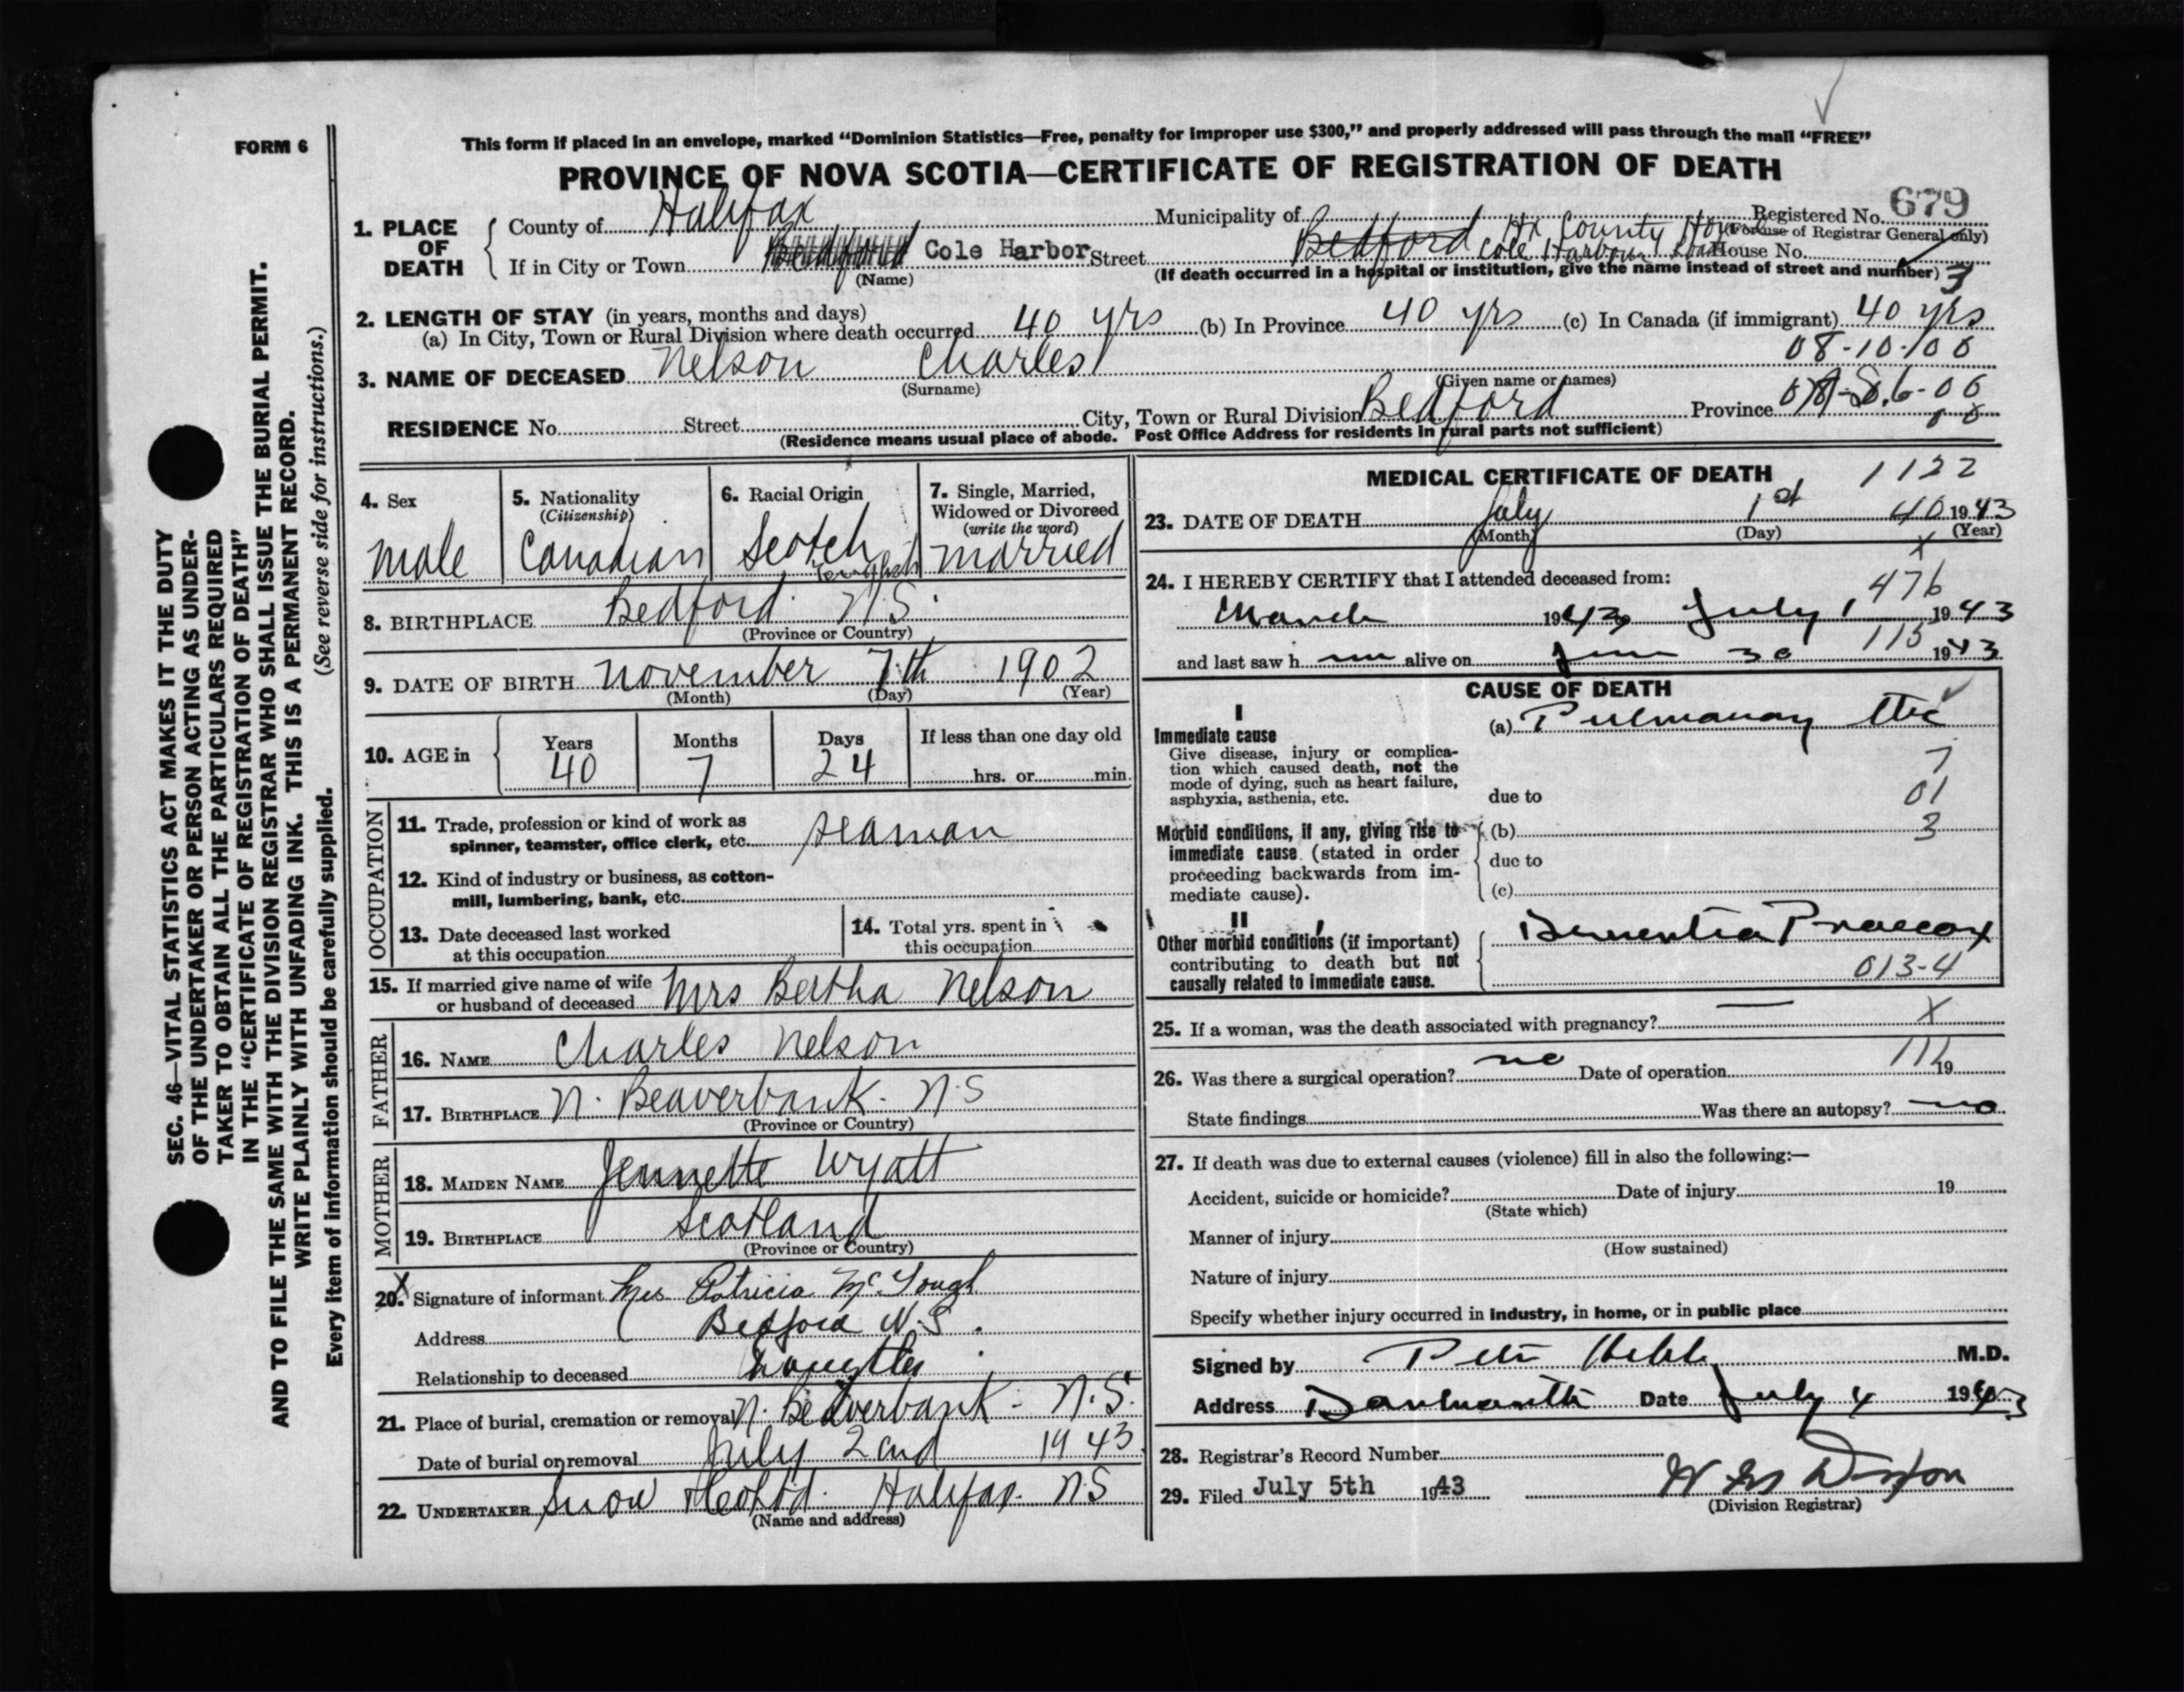 FORM 6
This form if placed in an envelope, marked “Dominion Statistics—Free, penalty for improper use $300,” and properly addressed will pass through the mail “FREE”
PROVINCE OF NOVA SCOTIA—CERTIFICATE OF REGISTRATION OF DEATH
SEC. 46—VITAL STATISTICS ACT MAKES IT THE DUTY
OF THE UNDERTAKER OR PERSON ACTING AS UNDER-
TAKER TO OBTAIN ALL THE PARTICULARS REQUIRED
IN THE “CERTIFICATE OF REGISTRATION OF DEATH”
AND TO FILE THE SAME WITH THE DIVISION REGISTRAR WHO SHALL ISSUE THE BURIAL PERMIT.
WRITE PLAINLY WITH UNFADING INK. THIS IS A PERMANENT RECORD.
(See reverse side for instructions.)
Every item of information should be carefully supplied.
1. PLACE OF DEATH
County of Halifax Municipality of Registered No. 679
Hx County Home (For use of Registrar General only)
If in City or Town Bedford Cole Harbor Street Bedford Cole Harbour House No.
(Name) (If death occurred in a hospital or institution, give the name instead of street and number) 3
2. LENGTH OF STAY (in years, months and days)
(a) In City, Town or Rural Division where death occurred 40 yrs (b) In Province 40 yrs (c) In Canada (if immigrant) 40 yrs
08-10-00
3. NAME OF DECEASED Nelson Charles
(Surname) (Given name or names)
RESIDENCE No. Street City, Town or Rural Division Bedford Province
(Residence means usual place of abode. Post Office Address for residents in rural parts not sufficient)
4. Sex
male
5. Nationality
(Citizenship)
Canadian
6. Racial Origin
Scotch
English
7. Single, Married,
Widowed or Divorced
(write the word)
married
8. BIRTHPLACE Bedford N.S.
(Province or Country)
9. DATE OF BIRTH November 7th 1902
(Month) (Day) (Year)
10. AGE in Years Months Days If less than one day old
40 7 24 hrs. or min.
OCCUPATION
11. Trade, profession or kind of work as
spinner, teamster, office clerk, etc. seaman
12. Kind of industry or business, as cotton-
mill, lumbering, bank, etc.
13. Date deceased last worked
at this occupation
14. Total yrs. spent in
this occupation
15. If married give name of wife
or husband of deceased Mrs Bertha Nelson
FATHER
16. NAME Charles Nelson
17. BIRTHPLACE N. Beaverbank. N.S
(Province or Country)
MOTHER
18. MAIDEN NAME Jennette Wyatt
19. BIRTHPLACE Scotland
(Province or Country)
X
20. Signature of informant Mrs Patricia
Address Bedford N.S.
Relationship to deceased daughter
21. Place of burial, cremation or removal N. Beaverbank - N.S.
Date of burial or removal July 2nd 1943
22. UNDERTAKER Snow & Co Ltd. Halifax. N.S
(Name and address)
MEDICAL CERTIFICATE OF DEATH 1122
23. DATE OF DEATH July 1st 40 1943
(Month) (Day) (Year)
X
24. I HEREBY CERTIFY that I attended deceased from:
476
March 1943 July 1, 1943
115
and last saw h im alive on June 30 1943
CAUSE OF DEATH
I
Immediate cause
Give disease, injury or complica-
tion which caused death, not the
mode of dying, such as heart failure,
asphyxia, asthenia, etc.
(a) Pulmonary tbc
7
due to 01
Morbid conditions, if any, giving rise to
immediate cause (stated in order
proceeding backwards from im-
mediate cause).
(b) 3
due to
(c)
II
Other morbid conditions (if important)
contributing to death but not
causally related to immediate cause.
Dementia Praecox
013-4
25. If a woman, was the death associated with pregnancy? — X
26. Was there a surgical operation? no Date of operation 19
State findings Was there an autopsy? no
27. If death was due to external causes (violence) fill in also the following:—
Accident, suicide or homicide? Date of injury 19
(State which)
Manner of injury
(How sustained)
Nature of injury
Specify whether injury occurred in industry, in home, or in public place
Signed by Peter Hebb M.D.
Address Dartmouth Date July 4 1943
28. Registrar's Record Number
29. Filed July 5th 1943
(Division Registrar)